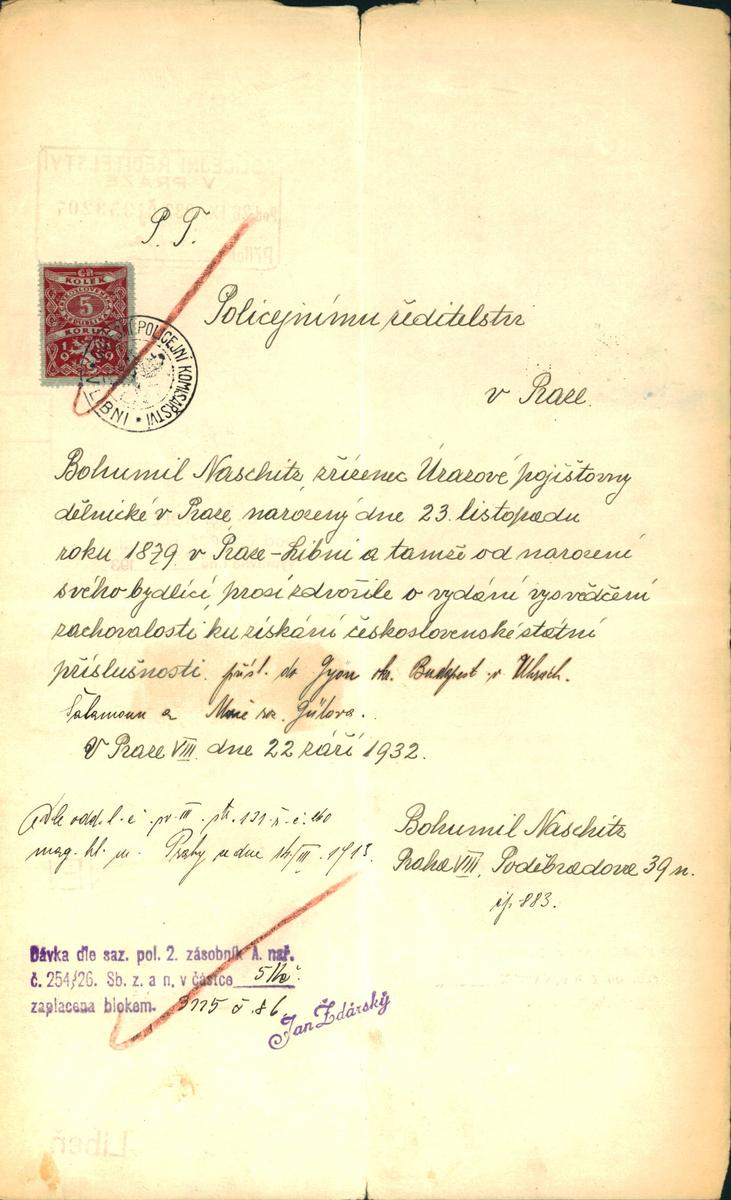 P. T.
ČR
KOLEK
5
KORUN
1919
POLICEJNÍ KOMISAŘSTVÍ
V LIBNI
Policejnímu ředitelství
v Praze.
Bohumil Naschitz, zřízenec Úrazové pojišťovny
dělnické v Praze, narozený dne 23. listopadu
roku 1879 v Praze-Libni a tamže od narození
svého bydlící, prosí zdvořile o vydání vysvědčení
zachovalosti ku získání československé státní
příslušnosti. přísl. do Gyon ok. Budapest v Uhrách.
Šalamoun a roz. Gütova.
V Praze VIII dne 22 září 1932.
Dle odd. l. č. pr. III. str. 121. ř. č. 260
mag. hl. m. Prahy ze dne 14/III. 1913.
Bohumil Naschitz
Praha VIII, Poděbradova 39 n.
čp. 883.
Dávka dle saz. pol. 2. zásobník A. nař.
č. 254/26. Sb. z. a n. v částce 5 Kč.
zaplacena blokem. 3115 č. 86.
Jan Žďárský
POLICEJNÍ ŘEDITELSTVÍ
V PRAZE
Libeň